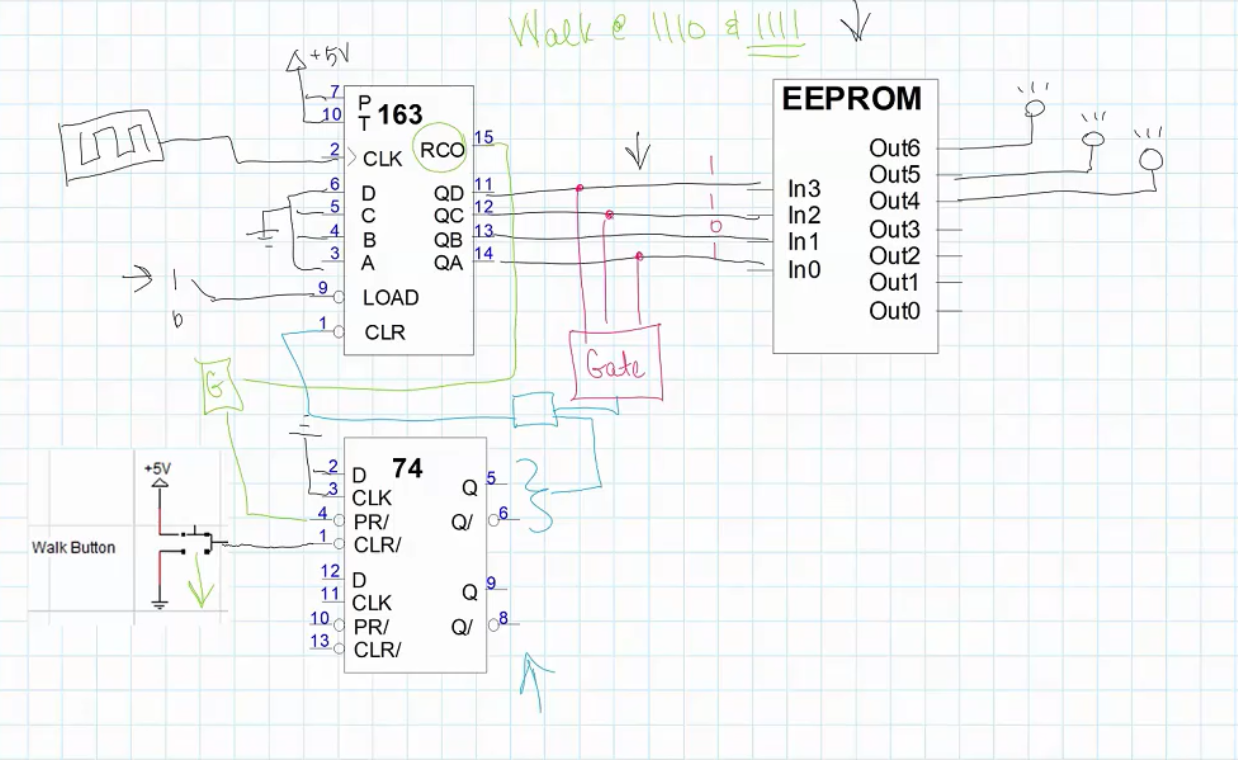 Walk @ 1110 & 1111
+5V
EEPROM
7 P
10 T
163
15 RCO
2 CLK
Out6
Out5
Out4
Out3
Out2
Out1
Out0
6 D QD 11
5 C QC 12
4 B QB 13
3 A QA 14
1
1
0
1
In3
In2
In1
In0
1
0
9 LOAD
1 CLR
G
Gate
74
2 D
3 CLK
4 PR/
1 CLR/
Q 5
Q/ 6
+5V
Walk Button
12 D
11 CLK
10 PR/
13 CLR/
Q 9
Q/ 8